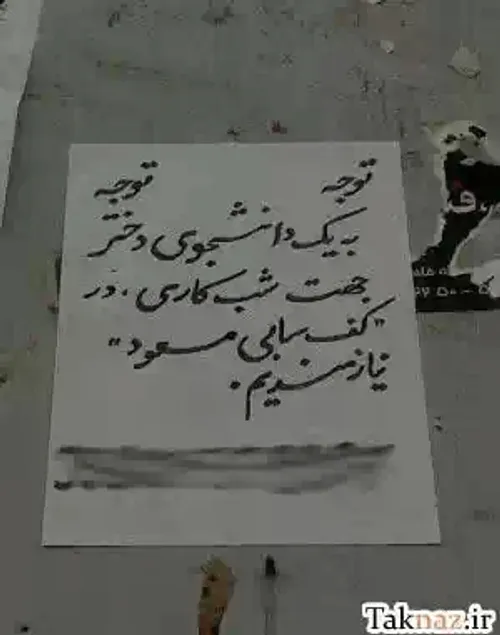 توجه توجه
به یک دانشجوی دختر
جهت شب کاری، در
"کف سابی مسعود"
نیازمندیم.
Taknaz.ir